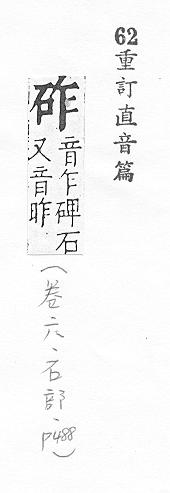 62重訂直音篇
砟
音乍碑石
又音昨
(卷六、石部、P488)